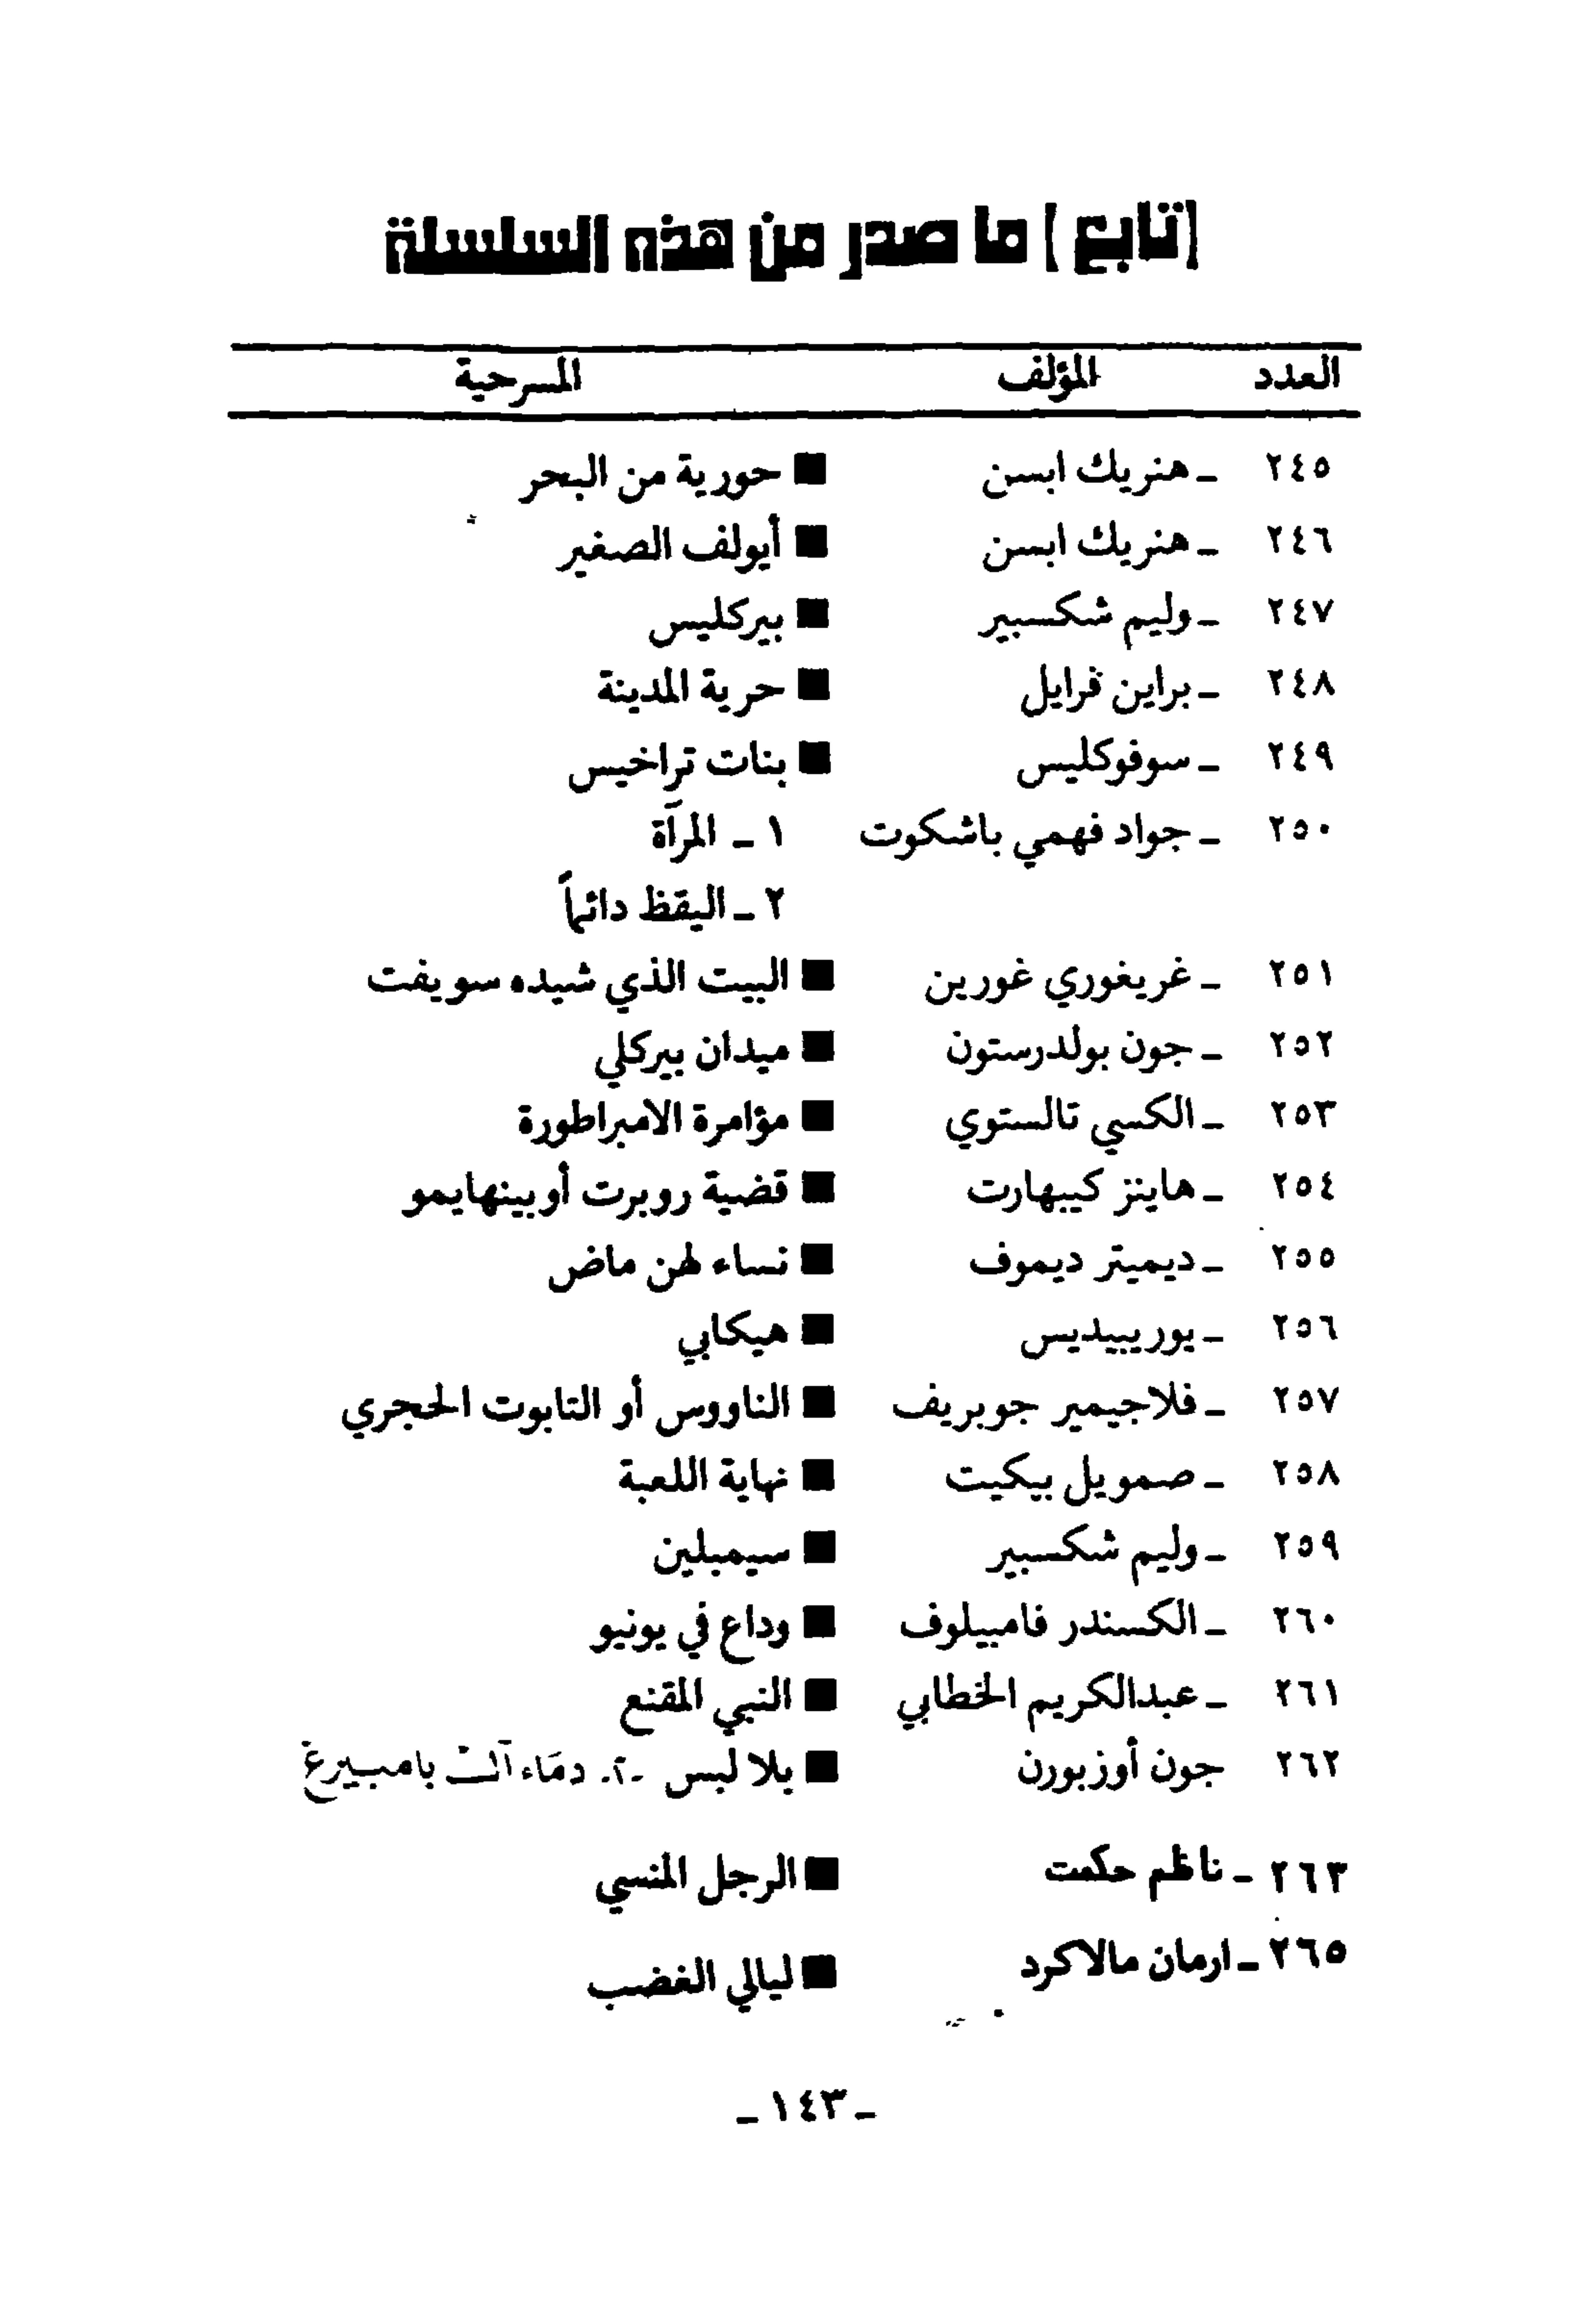 (تابع) ما صدر من هذه السلسلة
العدد المؤلف المسرحية
٢٤٥ ـ هنريك ابسن ■ حورية من البحر
٢٤٦ ـ هنريك ابسن ■ أيولف الصغير
٢٤٧ ـ وليم شكسبير ■ بيركليس
٢٤٨ ـ براين فرايل ■ حرية المدينة
٢٤٩ ـ سوفوكليس ■ بنات تراخيس
٢٥٠ ـ جواد فهمي باشكوت ١ ـ المرآة
٢ ـ اليقظ دائماً
٢٥١ ـ غريغوري غورين ■ البيت الذي شيده سويفت
٢٥٢ ـ جون بولدرستون ■ ميدان بيركلي
٢٥٣ ـ الكسي تالستوي ■ مؤامرة الامبراطورة
٢٥٤ ـ هاينز كيبهارت ■ قضية روبرت أوبينهايمو
٢٥٥ ـ ديميتر ديموف ■ نساء لهن ماض
٢٥٦ ـ يوريبيديس ■ هيكابي
٢٥٧ ـ فلاجيمير جوبريف ■ الناووس أو التابوت الحجري
٢٥٨ ـ صمويل بيكيت ■ نهاية اللعبة
٢٥٩ ـ وليم شكسبير ■ سيمبلين
٢٦٠ ـ الكسندر فامبيلوف ■ وداع في يونيو
٢٦١ ـ عبدالكريم الخطابي ■ النبي المقنع
٢٦٢ جون أوزبورن ■ بلا لبس ـ ٢ ـ دماء آلت بامبيرغ
٢٦٣ ـ ناظم حكمت ■ الرجل المنسي
٢٦٥ ـ ارمان مالاكرد ■ ليالي الغضب
ـ ١٤٣ ـ